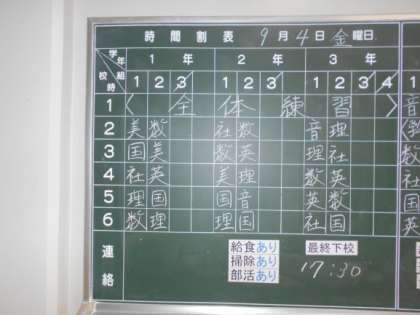 時間割表 9月4日金曜日
学年 1年 2年 3年
校時 組 1 2 3 1 2 3 1 2 3 4
1 〈全体練習〉 音
2 美 数 社 数 音 理
3 国 美 数 英 理 社
4 社 英 美 理 数 英
5 理 国 国 音 英 数
6 数 理 理 国 社 国
連絡
給食あり 最終下校
掃除あり 17:30
部活あり